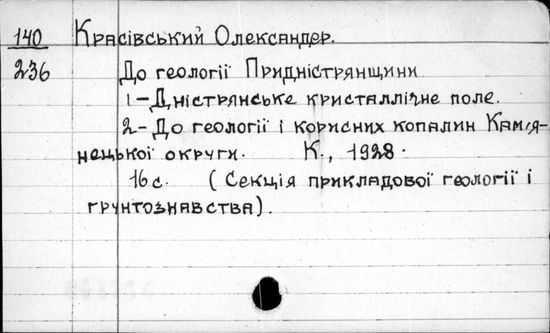 140 Красівський Олександер.
236 До геології Придністрянщини
1-Дністрянське кристаллічне поле.
2- До геології і корисних копалин Кам'я-
нецької округи. К., 1928.
16 с. (Секція прикладової геології і
грунтознавства).